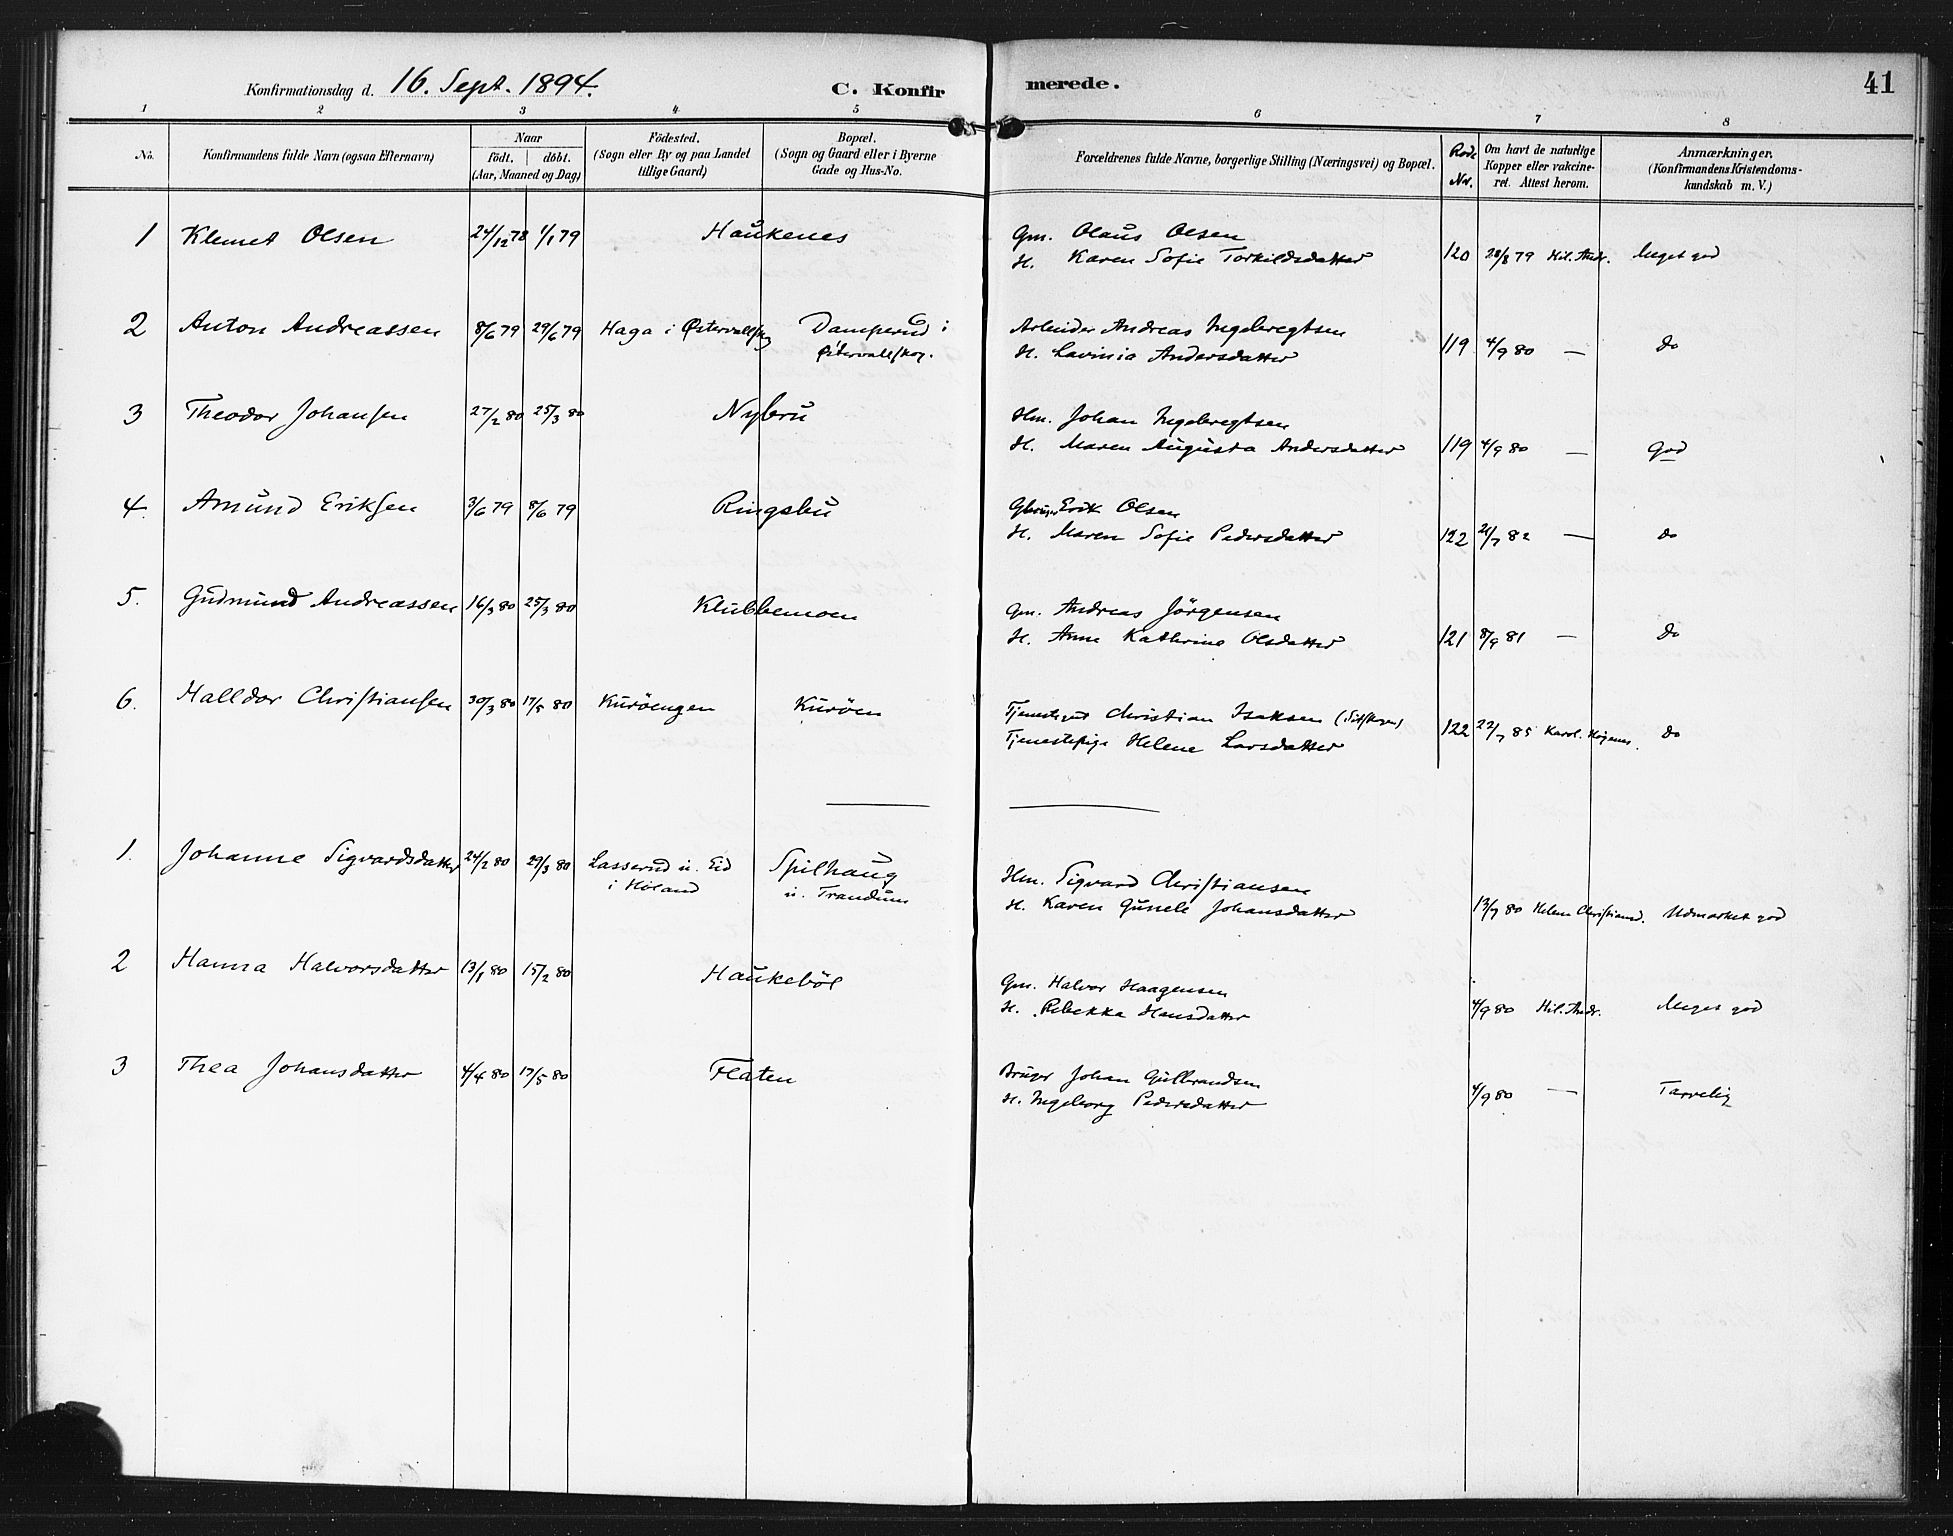 Konfirmationsdag d. 16. Sept. 1894. C. Konfir merede. 41
1 2 3 4 5 6 7 8
No. Konfirmandens fulde Navn (ogsaa Efternavn)
Naar
födt. döbt.
(Aar, Maaned og Dag)
Födested.
(Sogn eller By og paa Landet
tillige Gaard)
Bopæl.
(Sogn og Gaard eller i Byerne
Gade og Hus-No.
Forældrenes fulde Navne, borgerlige Stilling (Næringsvei) og Bopæl.
Rode
Nr.
Om havt de naturlige
Kopper eller vakcine-
ret. Attest herom.
Anmærkninger.
(Konfirmandens Kristendoms-
kundskab m. V.)
1 Klemet Olsen 24/12 78 1/1 79 Haukenes Gm. Olaus Olsen
H. Karen Sofie Torkildsdatter 120 28/8 79 Hil. Andr. Meget god
2 Anton Andreassen 8/6 79 29/6 79 Haga i Østervallskog Damperud i Arbeider Andreas Ingebregtsen
Østervallskog. H. Lavinia Andersdatter 119 4/9 80 — Do
3 Theodor Johansen 27/2 80 25/3 80 Nybru Hm. Johan Ingebregtsen
H. Maren Augusta Andersdatter 119 4/9 80 — God
4. Amund Eriksen 3/6 79 8/6 79 Ringsbu Gbruger Erik Olsen
H. Maren Sofie Pedersdatter 122 21/7 82 — Do
5. Gudmund Andreassen 16/3 80 25/3 80 Klubbemoen Gm. Andreas Jörgensen
H. Anne Kathrine Olsdatter 121 8/9 81 — Do
6. Halldor Christiansen 30/3 80 17/5 80 Kuröengen Kuröen Tjenestegut Christian Isaksen
Tjenestepige Helene Larsdatter 122 22/7 85 Karol. Do
1. Johanne Sigvardsdatter 24/2 80 29/3 80 Lasserud u. Eid Spilhaug Hm. Sigvard Christiansen
i Høland u. Trandum H. Karen Gunele Johansdatter 13/7 80 Helene Christiansd. Udmærket god
2 Hanna Halvorsdatter 13/1 80 15/2 80 Haukeböl Gm. Halvor Haagensen
H. Rebekka Hansdatter 4/9 80 Hil. Andr. Meget god
3 Thea Johansdatter 4/4 80 17/5 80 Flaten Bruger Johan Gulbrandsen
H. Ingeborg Pedersdatter 4/9 80 — Tarvelig